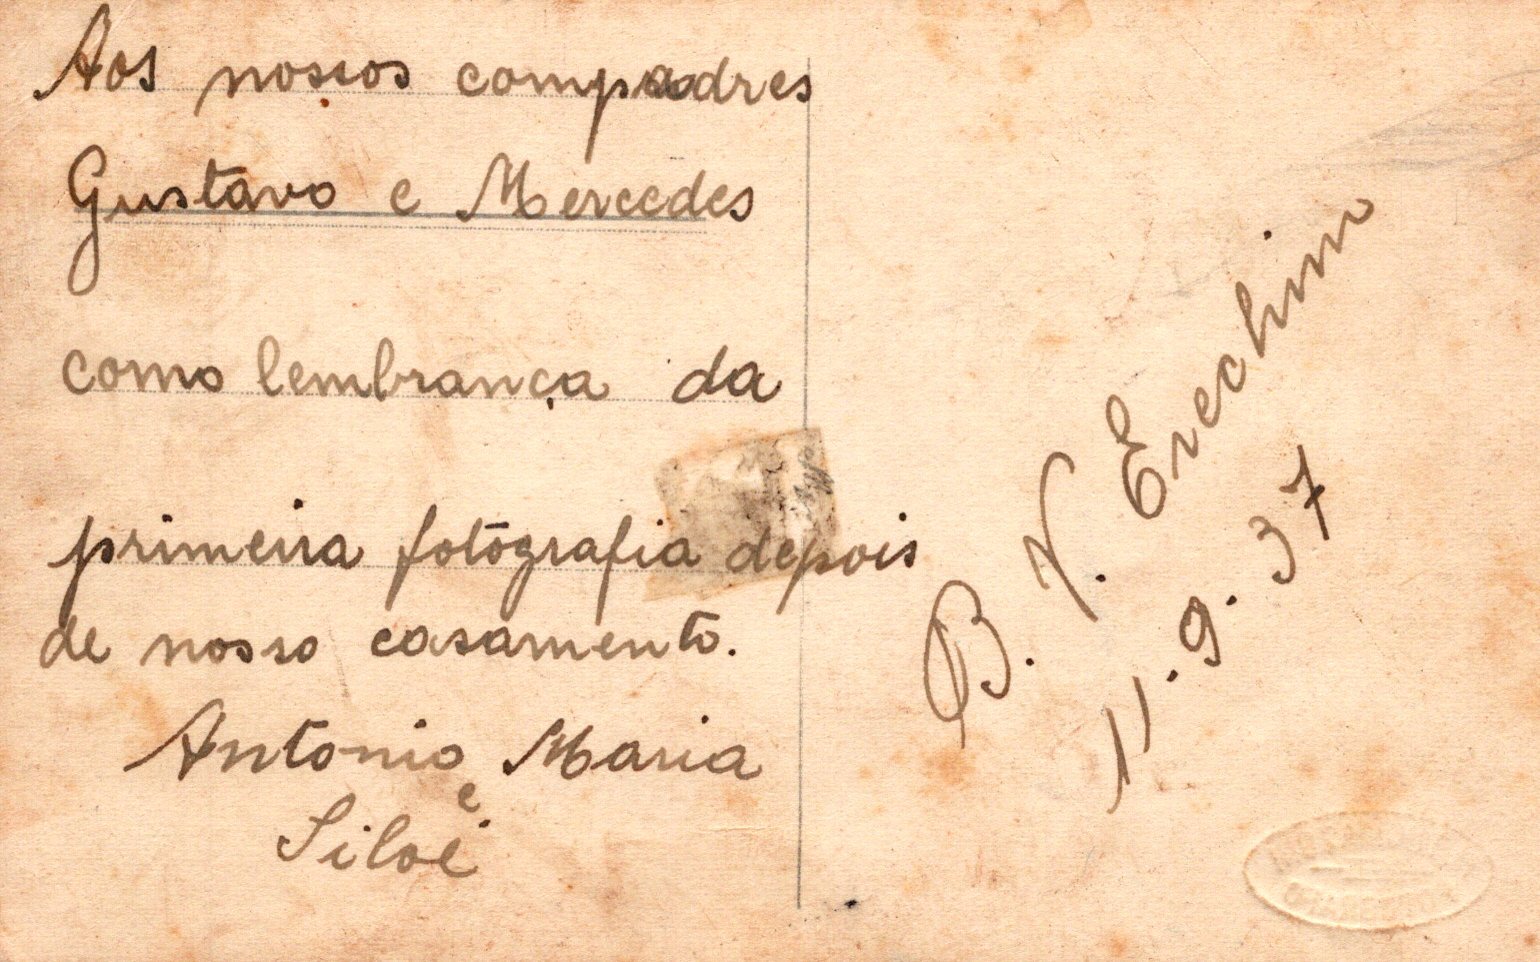 Aos nossos compadres
Gustavo e Mercedes
como lembrança da
primeira fotografia depois
de nosso casamento.
Antonio Maria
e
Siloé
B. V. Erechim
11.9.37